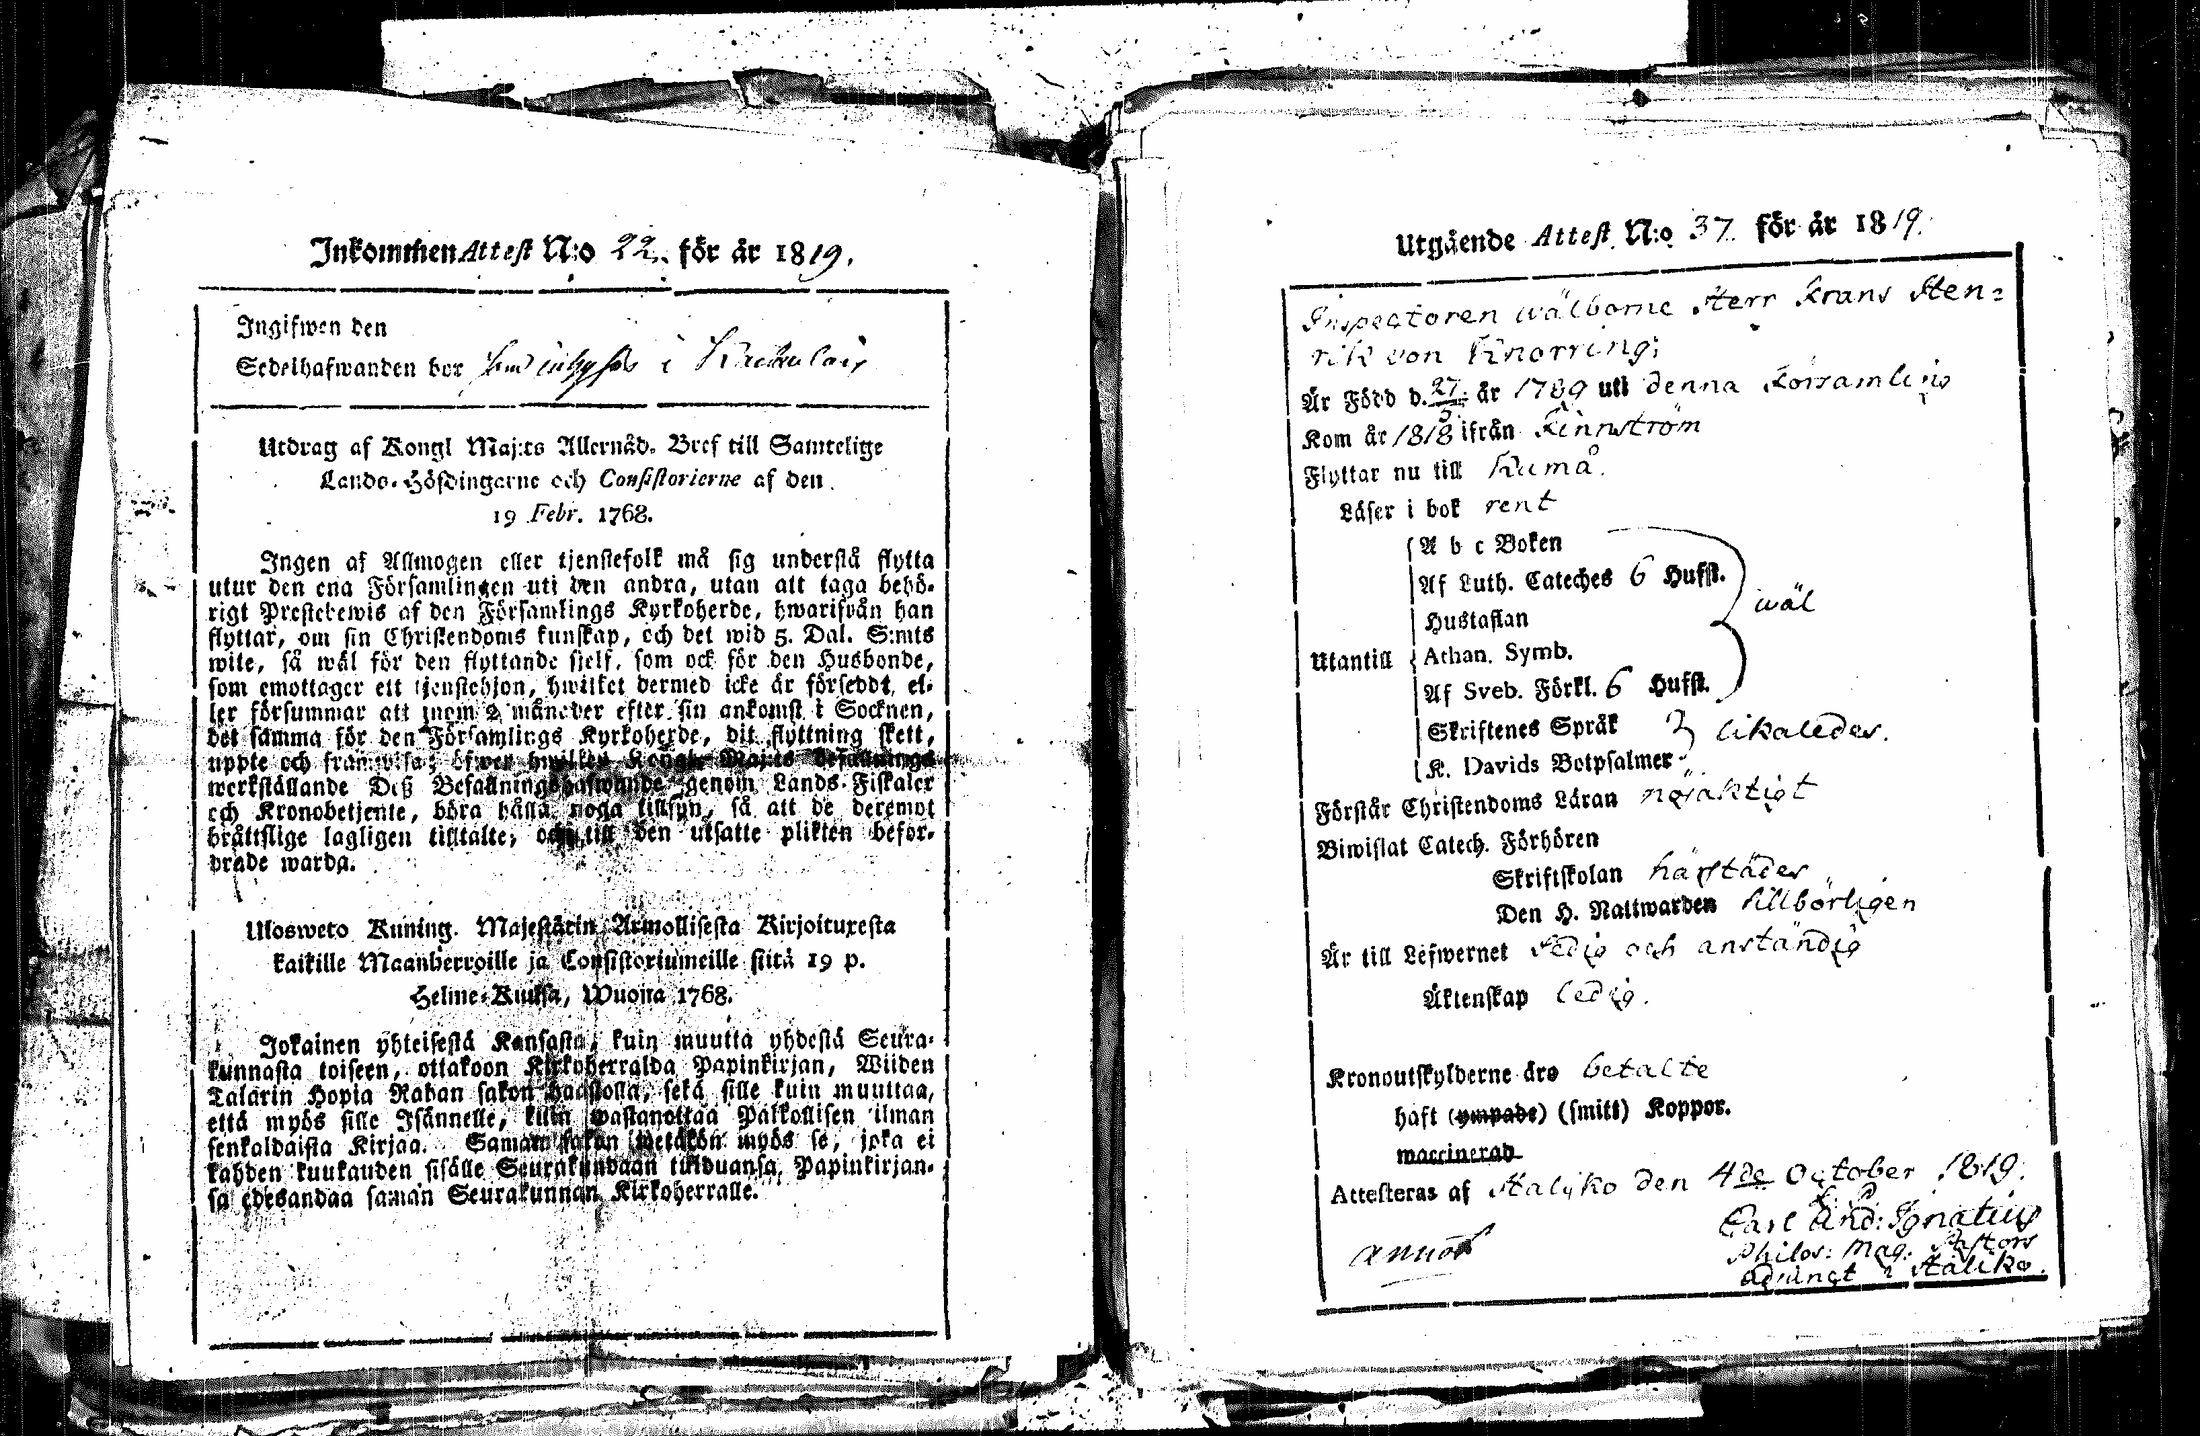 Inkommen Attest N:o 22. för år 1819.
Ingifwen den
Sedelhafwanden bor i
Utdrag af Kongl Maj:ts Allernåd. Bref till Samtelige
Lands-Höfdingarne och Consistorierne af den
19 Febr. 1768.
Ingen af Allmogen eller tjenstefolk må sig understå flytta
utur den ena Församlingen uti den andra, utan att taga behö-
rigt Prestebewis af den Församlings Kyrkoherde, hwarifrån han
flyttar, om sin Christendoms kunskap, och det wid 5. Dal. S:mts
wite, så wäl för den flyttande sjelf, som ock för den Husbonde,
som emottager ett tjenstehjon, hwilket dermed icke är försedt, el-
ler försummar att inom 2 månader efter sin ankomst i Socknen,
det samma för den Församlings Kyrkoherde, dit flyttning skett,
uppte och framwisa; öfwer hwilken Kongl. Maj:ts befallnings
werkställande Deß Befallningshafwande genom Lands-Fiskaler
och Kronobetjente, böra hålla noga tillsyn, så att de deremot
bråttslige lagligen tilltalte, och till den utsatte plikten befor-
drade warda.
Ulosweto Kuning. Majestätin Armollisesta Kirjoituxesta
kaikille Maanherroille ja Consistoriumeille siitä 19 p.
Helme-Kuusa, Wuona 1768.
Jokainen yhteisestä Kansasta, kuin muutta yhdestä Seura-
kunnasta toiseen, ottakoon Kirkoherralda Papinkirjan, Wiiden
Talarin Hopia Rahan sakon haastolla, sekä sille kuin muuttaa,
että myös sille Isännelle, kuin wastanottaa Palkollisen ilman
senkaldaista Kirjaa. Saman sakon wetäkön myös se, joka ei
kahden kuukauden sisälle Seurakundaan tulduansa, Papinkirjan-
sa edesandaa saman Seurakunnan Kirkoherralle.
Utgående Attest N:o 37. för år 1819.
Inspectoren wälborne Herr Frans Hen=
rik von Knorring;
Är Född d. 27/5 år 1789 uti denna Församling
Kom år 1818 ifrån Finnström
Flyttar nu till Kumå.
Läser i bok rent
A b c Boken
Af Luth. Cateches 6 Hufst.
Hustaflan wäl
Utantill Athan. Symb.
Af Sveb. Förkl. 6 Hufst.
Skriftenes Språk likaledes.
K. Davids Botpsalmer
Förstår Christendoms Läran nöjaktigt
Biwistat Catech. Förhören
Skriftskolan härstädes
Den H. Nattwarden tillbörligen
Är till Lefwernet sedig och anständig
Äktenskap ledig.
Kronoutskylderne äro betalte
haft (ympade) (smitt) Koppor.
waccinerad
Attesteras af Haliko den 4de October 1819.
Carl And: Ignatius
Philos: Mag. Pastors
annot adjunct i Haliko.